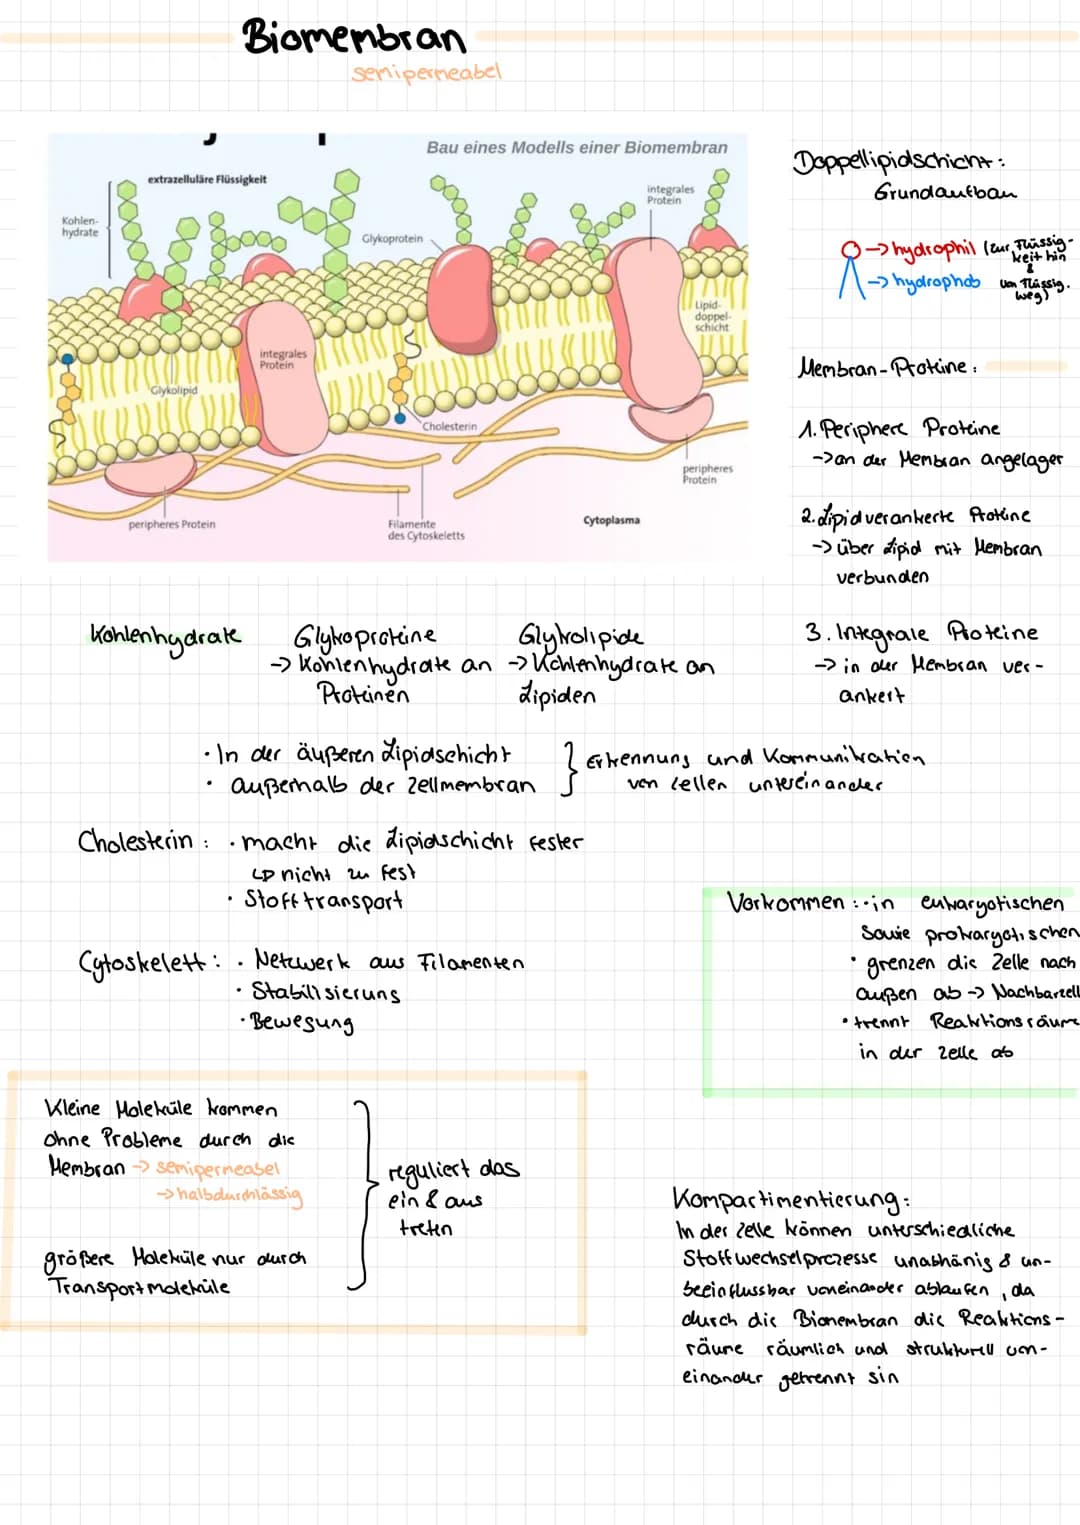 Biomembran
semipermeabel
Bau eines Modells einer Biomembran
extrazelluläre Flüssigkeit
Kohlen-
hydrate
Glykoprotein
integrales
Protein
Lipid-
doppel-
schicht
integrales
Protein
Glykolipid
Cholesterin
peripheres
Protein
peripheres Protein
Filamente
des Cytoskeletts
Cytoplasma
Doppellipidschicht:
Grundaufbau
-> hydrophil (zur Flüssig-
keit hin
&
-> hydrophob von Flüssig.
weg)
Membran-Proteine:
1. Periphere Proteine
-> an der Membran angelager
2. Lipidverankerte Proteine
-> über Lipid mit Membran
verbunden
3. Integrale Proteine
-> in der Membran ver-
ankert
Kohlenhydrate
Glykoproteine
-> Kohlenhydrate an
Proteinen
Glykolipide
-> Kohlenhydrate an
Lipiden
· In der äußeren Lipidschicht
· außerhalb der Zellmembran
} Erkennung und Kommunikation
von Zellen untereinander
Cholesterin: · macht die Lipidschicht fester
↳ nicht zu fest
· Stofftransport
Cytoskelett: · Netzwerk aus Filamenten
· Stabilisierung
· Bewegung
Vorkommen: · in eukaryotischen
sowie prokaryotischen
· grenzen die Zelle nach
außen ab -> Nachbarzell
· trennt Reaktionsräume
in der Zelle ab
Kleine Moleküle kommen
ohne Probleme durch die
Membran -> semipermeabel
-> halbdurchlässig
größere Moleküle nur durch
Transportmoleküle
reguliert das
ein & aus
treten
Kompartimentierung:
In der Zelle können unterschiedliche
Stoffwechselprozesse unabhänig & un-
beeinflussbar voneinander ablaufen, da
durch die Biomembran die Reaktions-
räume räumlich und strukturell von-
einander getrennt sin